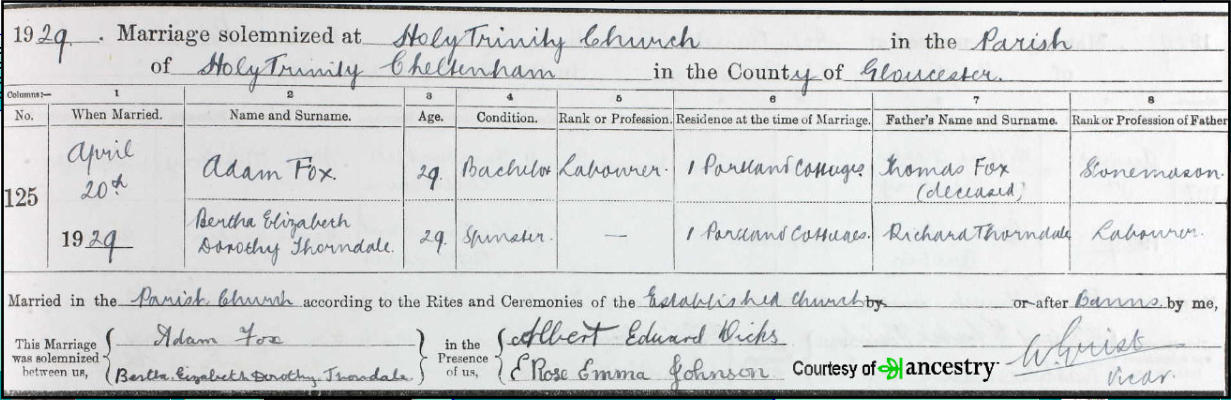 1929. Marriage solemnized at Holy Trinity Church in the Parish
of Holy Trinity Cheltenham in the County of Gloucester.
Columns:— 1 2 3 4 5 6 7 8
No. When Married. Name and Surname. Age. Condition. Rank or Profession. Residence at the time of Marriage. Father's Name and Surname. Rank or Profession of Father
125 April 20th 1929
Adam Fox. 29. Bachelor Labourer. 1 Portland Cottages Thomas Fox (deceased) Stonemason.
Bertha Elizabeth
Dorothy Thorndale. 29. Spinster. — 1 Portland Cottages. Richard Thorndale Labourer.
Married in the Parish Church according to the Rites and Ceremonies of the Established Church by or after Banns by me,
This Marriage was solemnized between us,
Adam Fox
Bertha Elizabeth Dorothy Thorndale
in the Presence of us,
Albert Edward Dicks
E Rose Emma Johnson
Courtesy of ancestry
Vicar.